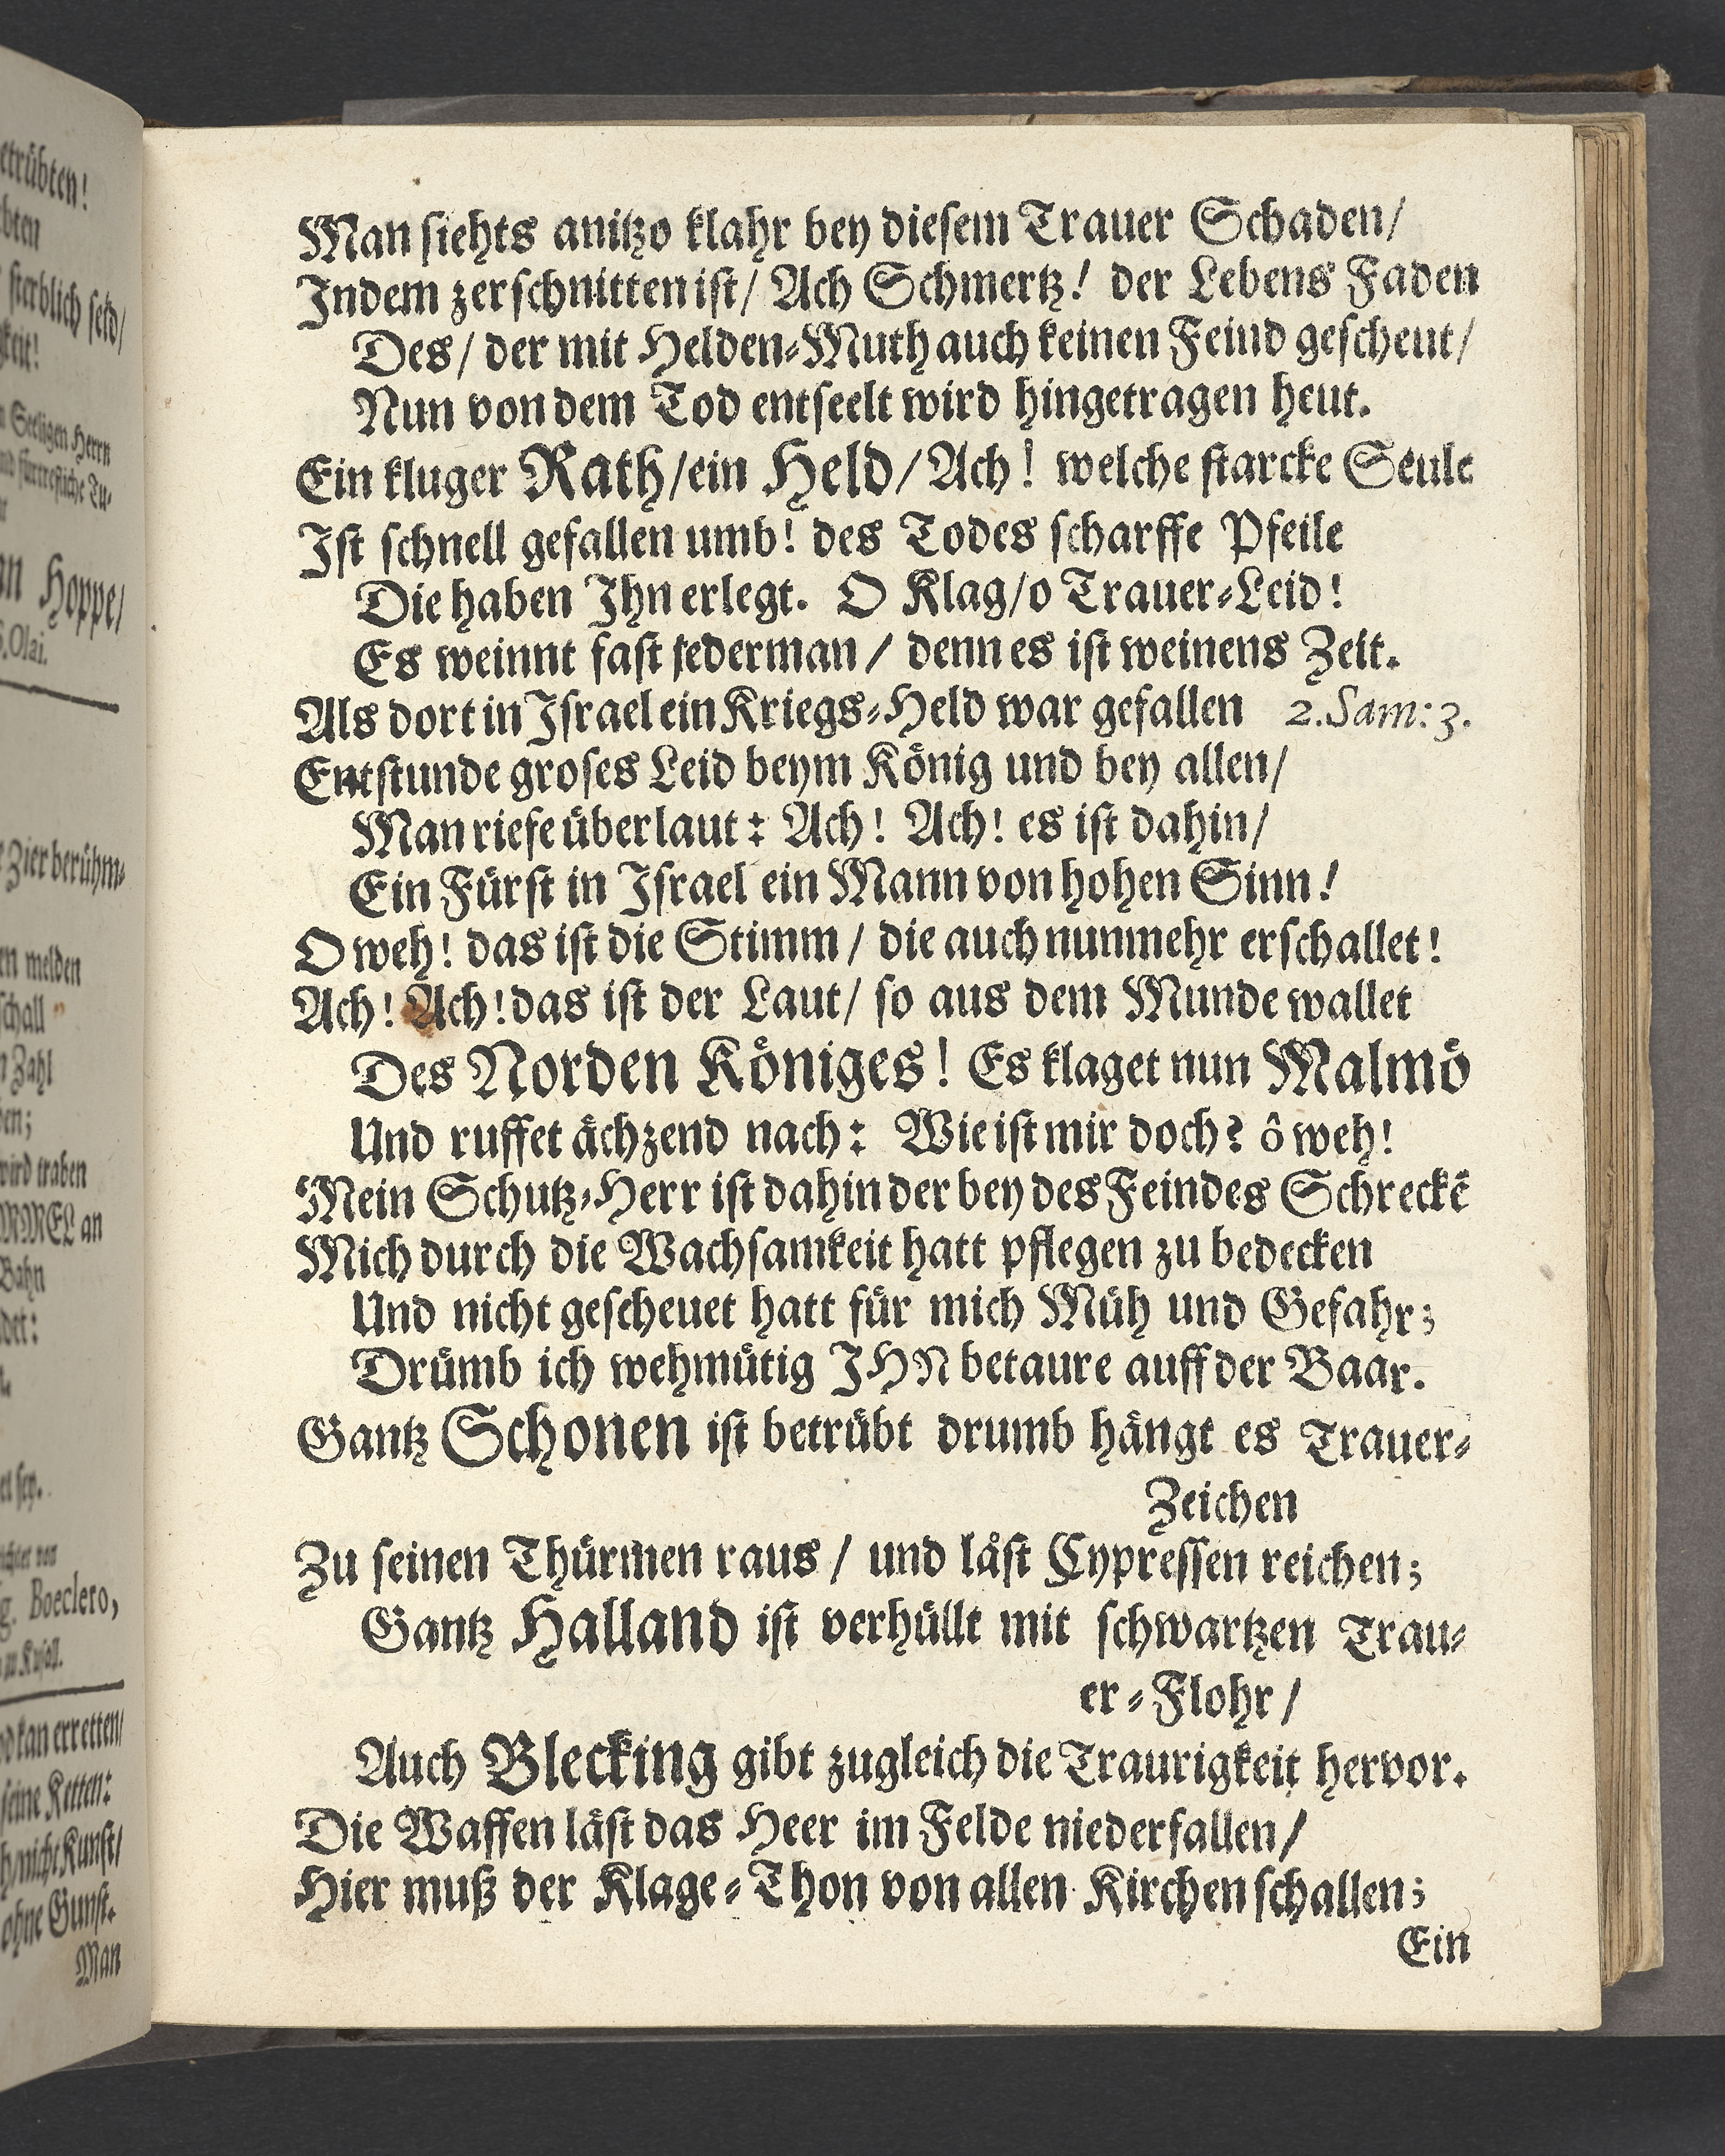 etrübten!
bten
sterblich seid/
gkeit!
n Seeligen Herrn
und fürtrefliche Tu-
Hoppe/
S. Olai.
Zier berühm-
en melden
schall
n Zahl
ben;
wird traben
an
Bahn
det:
et sey.
Boeclero,
od kan erretten/
seine Ketten:
h/nicht Kunst/
ohne Gunst.
Man
Man siehts anitzo klahr bey diesem Trauer Schaden/
Indem zerschnitten ist/ Ach Schmertz! der Lebens Faden
Des/ der mit Helden-Muth auch keinen Feind gescheut/
Nun von dem Tod entseelt wird hingetragen heut.
Ein kluger Rath/ein Held/Ach! welche starcke Seule
Ist schnell gefallen umb! des Todes scharffe Pfeile
Die haben Ihn erlegt. O Klag/o Trauer-Leid!
Es weinnt fast jederman/ denn es ist weinens Zeit.
Als dort in Israel ein Kriegs-Held war gefallen 2. Sam: 3.
Entstunde groses Leid beym König und bey allen/
Man riefe überlaut: Ach! Ach! es ist dahin/
Ein Fürst in Israel ein Mann von hohen Sinn!
O weh! das ist die Stimm/ die auch nunmehr erschallet!
Ach! Ach! das ist der Laut/ so aus dem Munde wallet
Des Norden Königes! Es klaget nun Malmö
Und ruffet ächzend nach: Wie ist mir doch? ô weh!
Mein Schutz-Herr ist dahin der bey des Feindes Schreckẽ
Mich durch die Wachsamkeit hatt pflegen zu bedecken
Und nicht gescheuet hatt für mich Müh und Gefahr;
Drümb ich wehmütig IHN betaure auff der Baar.
Gantz Schonen ist betrübt drumb hängt es Trauer-
Zeichen
Zu seinen Thürmen raus/ und läst Cypressen reichen;
Gantz Halland ist verhüllt mit schwartzen Trau-
er-Flohr/
Auch Blecking gibt zugleich die Traurigkeit hervor.
Die Waffen läst das Heer im Felde niederfallen/
Hier muß der Klage-Thon von allen Kirchen schallen;
Ein